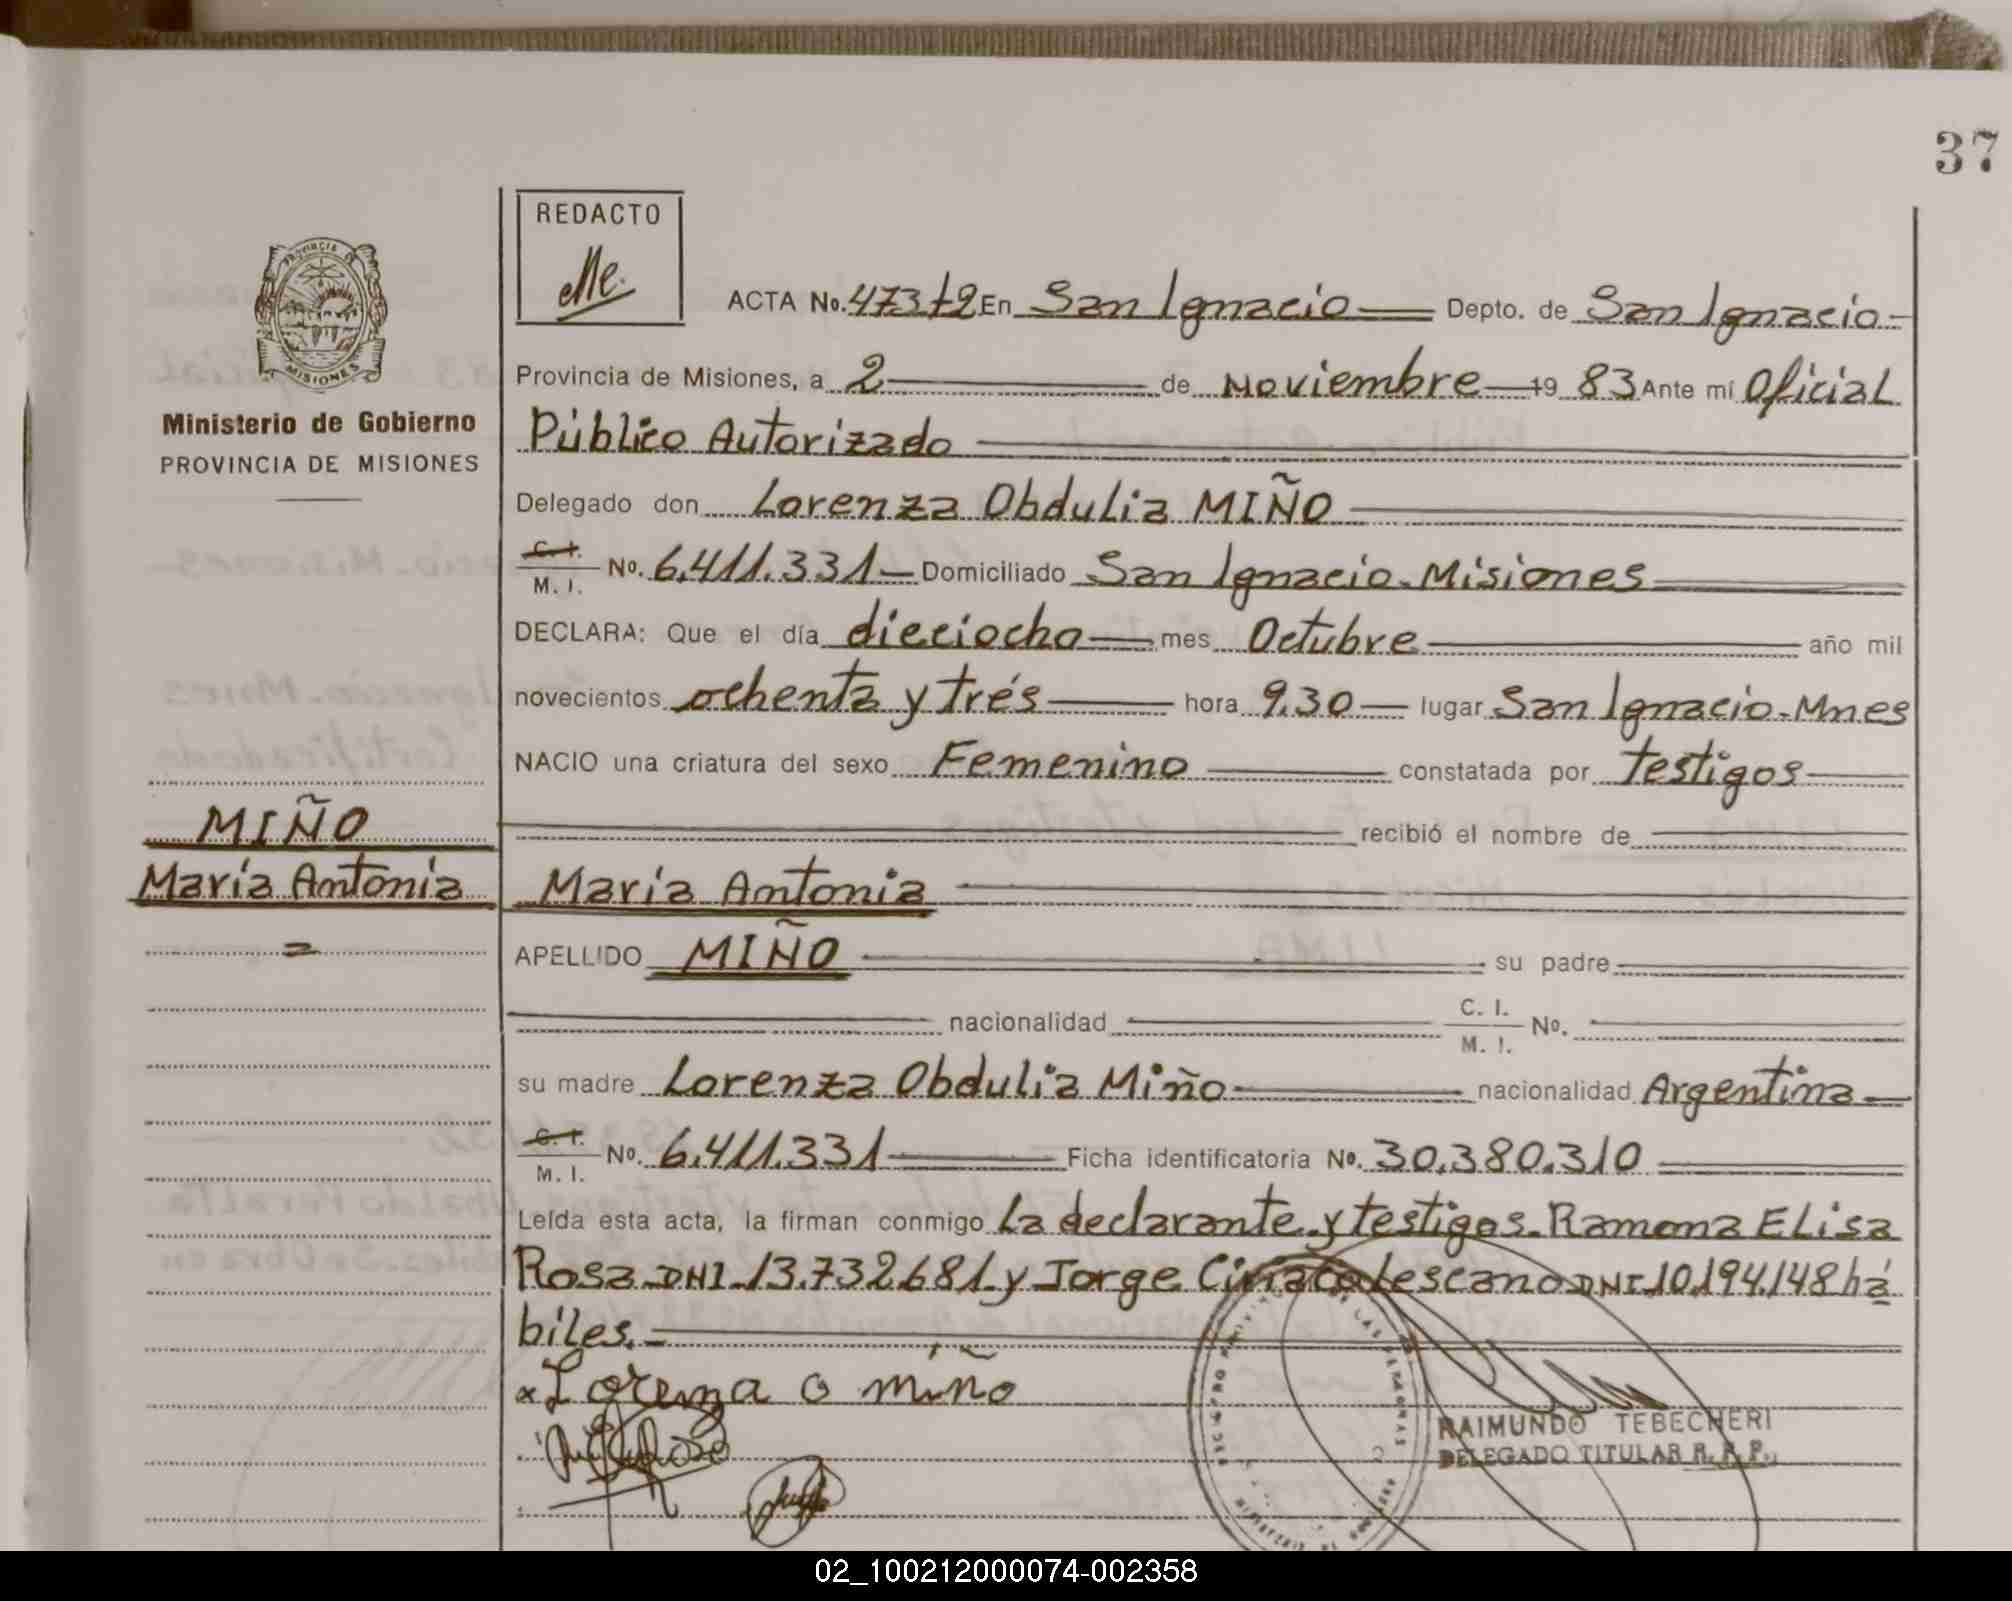 37
REDACTO
PROVINCIA
MISIONES
Ministerio de Gobierno
PROVINCIA DE MISIONES
ACTA No. 473 t2 En San Ignacio Depto. de San Ignacio-
Provincia de Misiones, a 2 de Noviembre 19 83 Ante mí Oficial
Público Autorizado
Delegado don Lorenza Obdulia MIÑO
C. I. M. I. No. 6.411.331 Domiciliado San Ignacio-Misiones
DECLARA: Que el día dieciocho mes Octubre año mil
novecientos ochenta y trés hora 9.30 lugar San Ignacio-Mnes
NACIO una criatura del sexo Femenino constatada por testigos
recibió el nombre de
MIÑO
María Antonia
=
María Antonia
APELLIDO MIÑO su padre
nacionalidad C. I. M. I. No.
su madre Lorenza Obdulia Miño nacionalidad Argentina
C. I. M. I. No. 6.411.331 Ficha identificatoria No. 30.380.310
Leída esta acta, la firman conmigo La declarante y testigos. Ramona Elisa
Rosa DNI 13.732.681 y Jorge Ciriaco Lescano DNI 10.194.148 há
biles.-
x Lorenza O miño
RAIMUNDO TEBECHERI
DELEGADO TITULAR R. P.
02_100212000074-002358